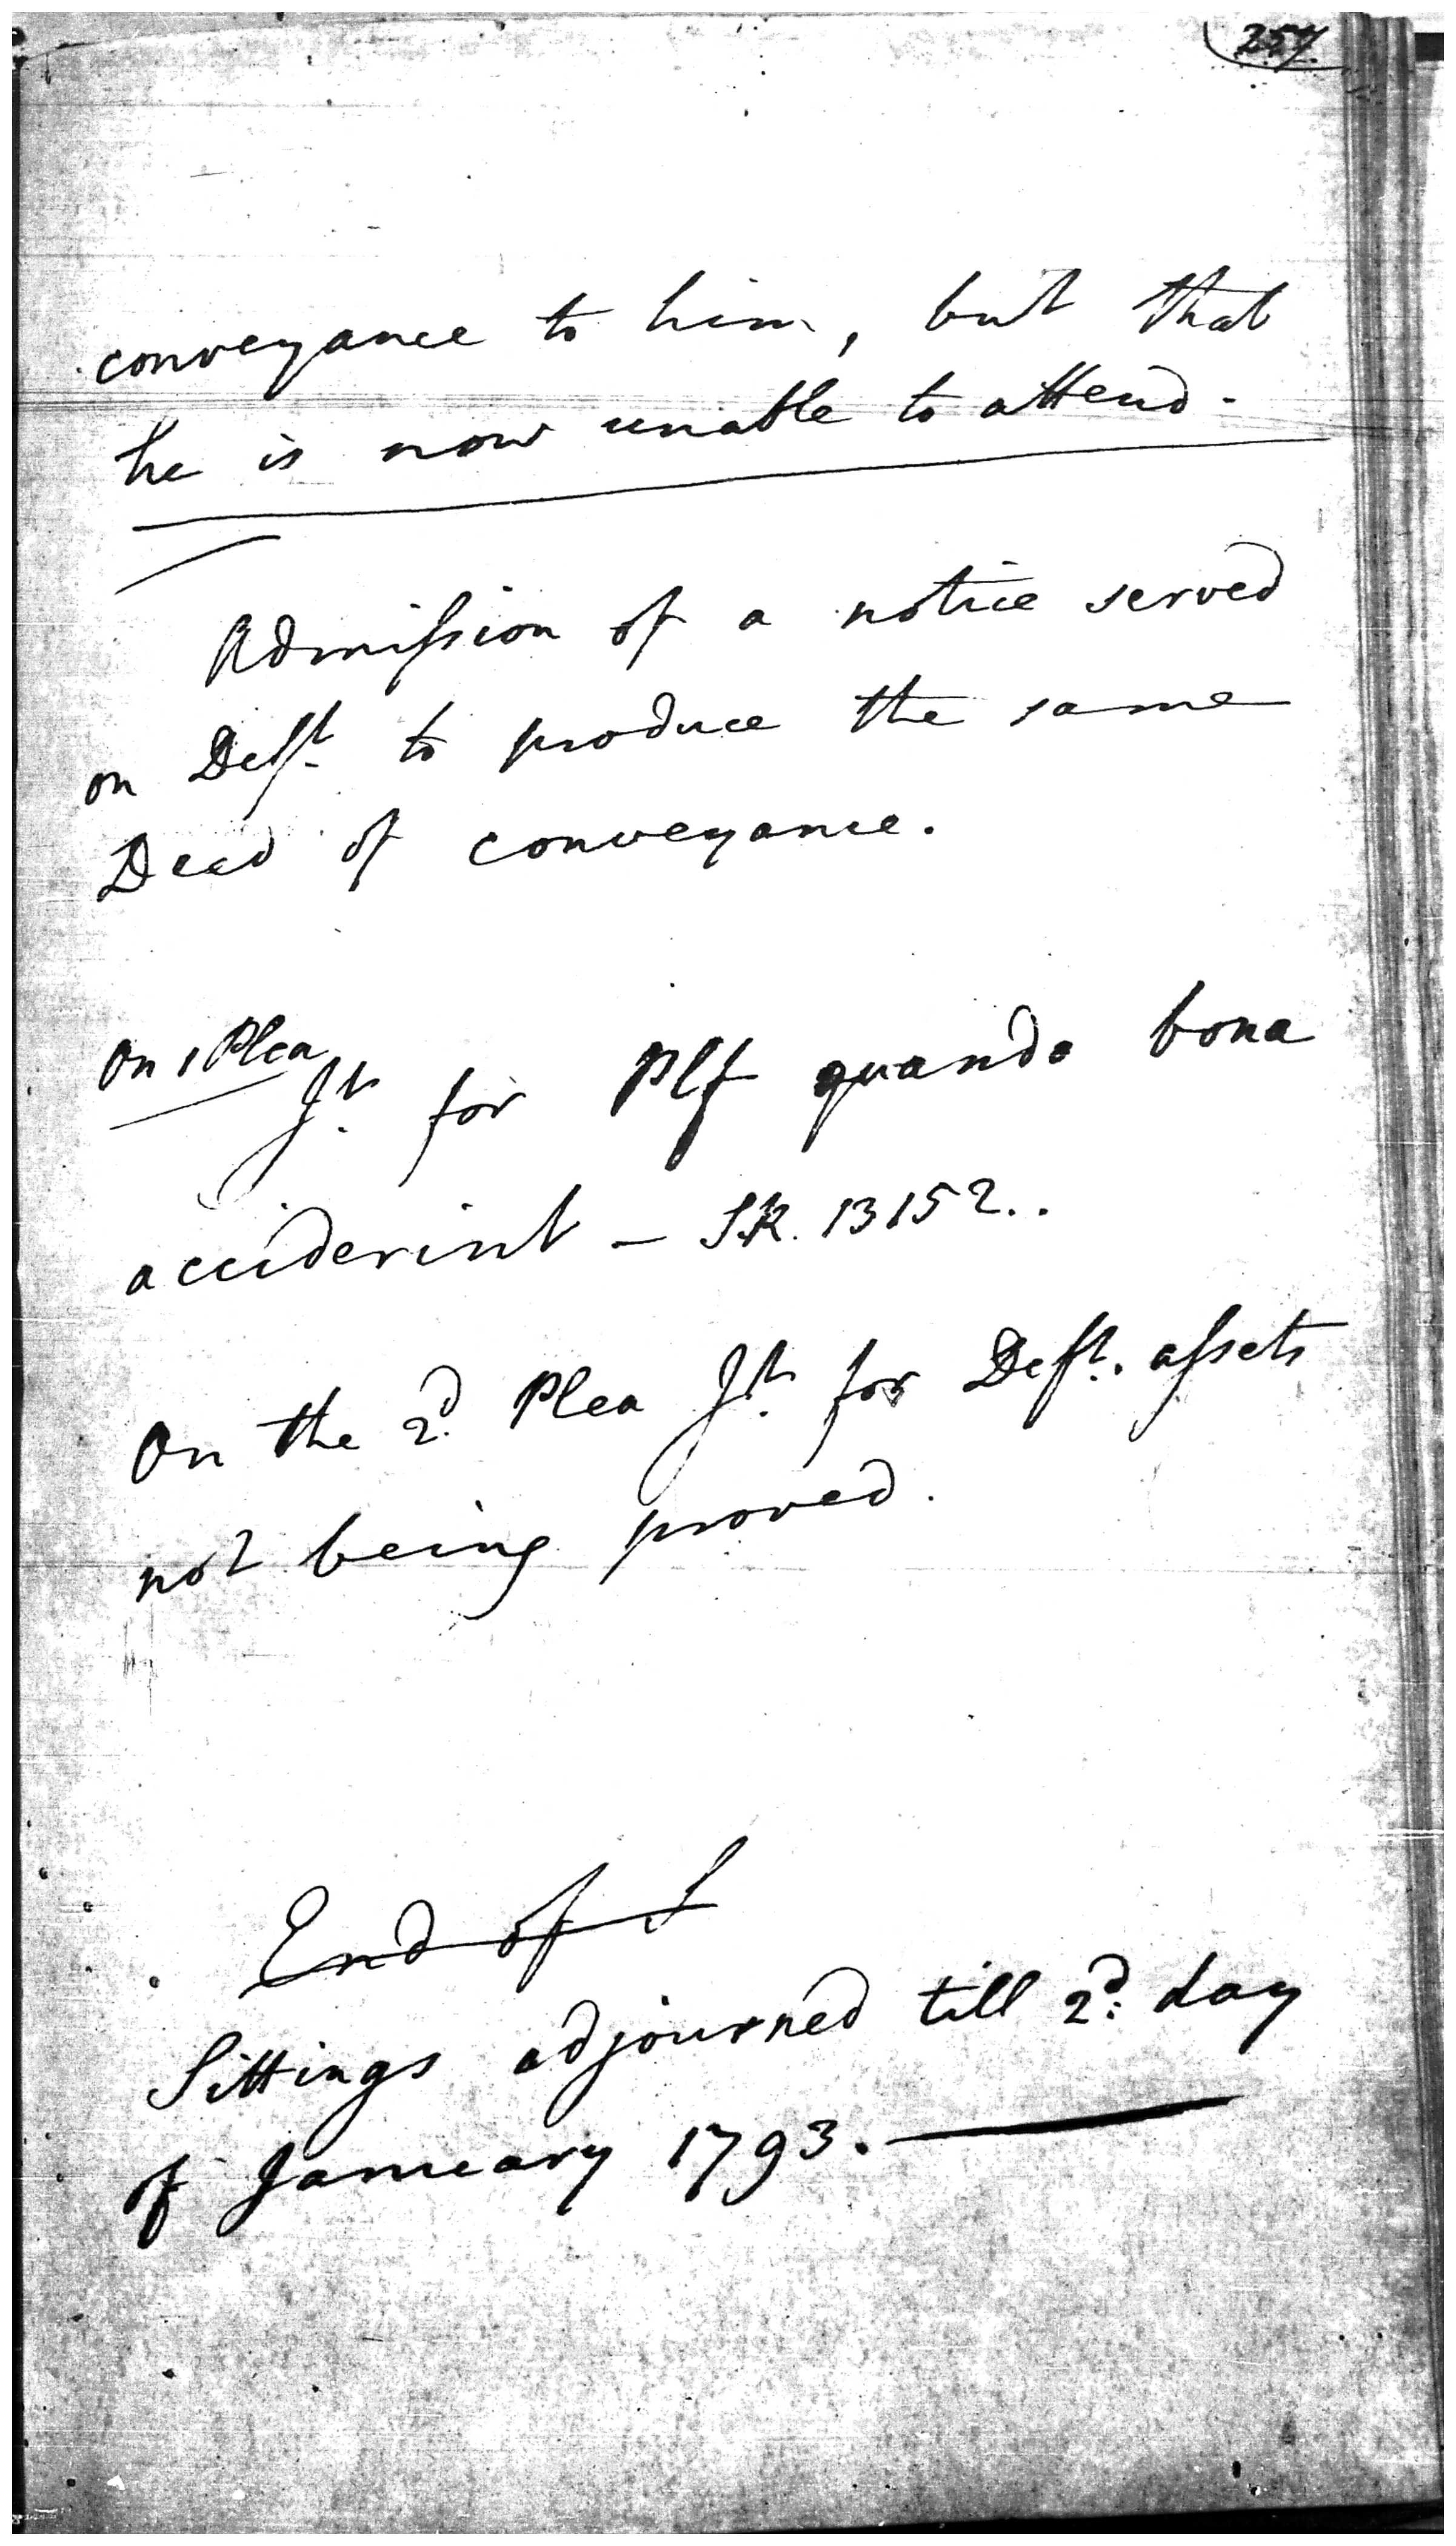 257.
conveyance to him, but that
he is now unable to attend.
Admission of a notice served
on Deft. to produce the same
Deed of conveyance.
On 1 Plea
Jt. for Plf quando bona
acciderint - S.R. 13152..
On the 2d. Plea Jt. for Deft. assets
not being proved.
End of S
Sittings adjourned till 2d: day
of January 1793.